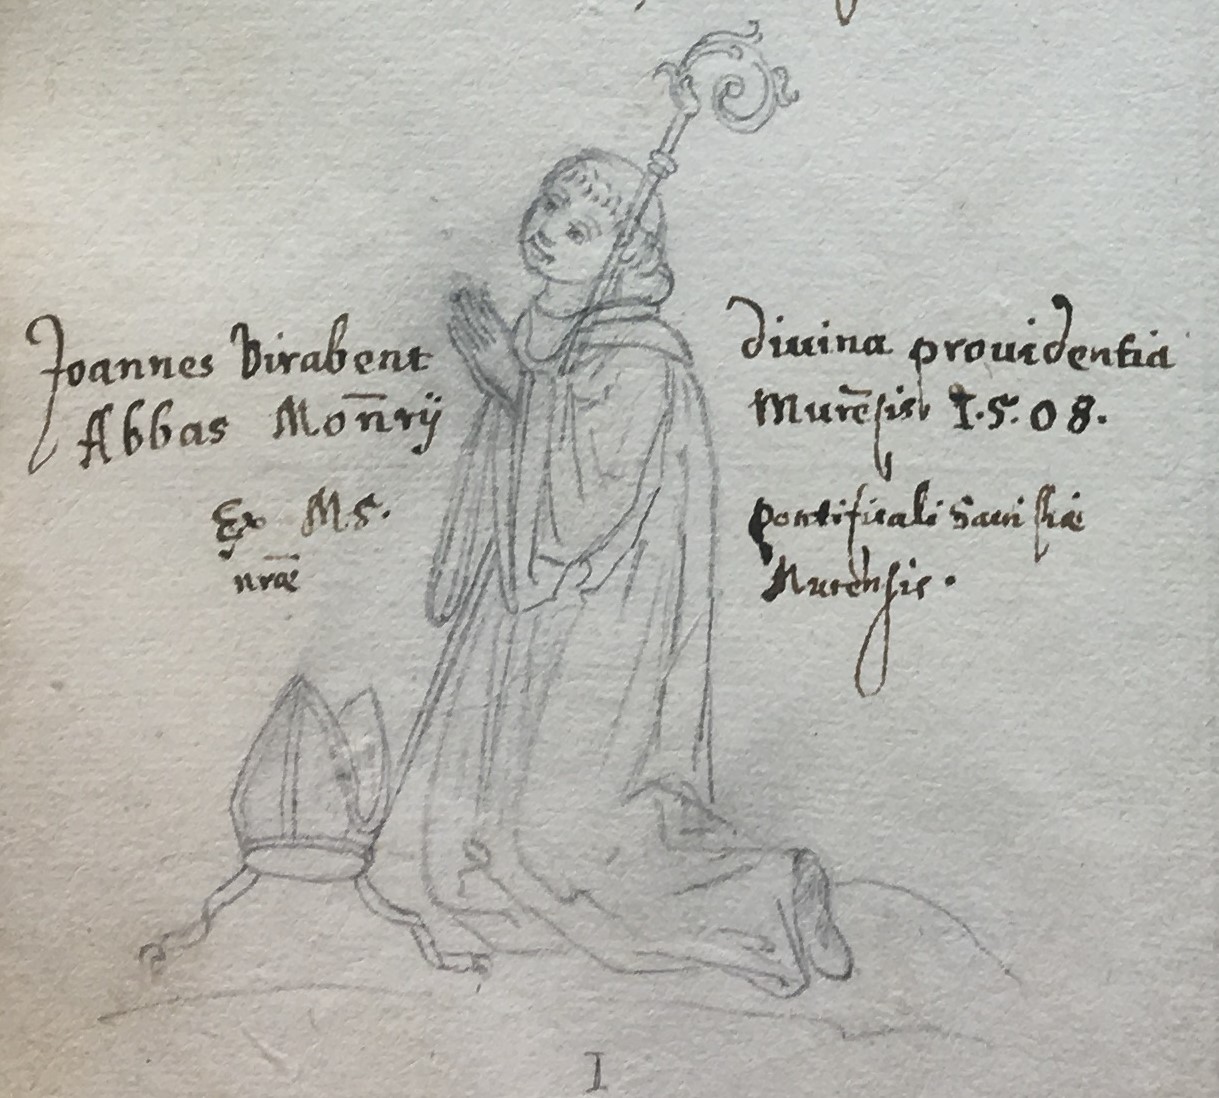 Joannes Birabent divina providentia
Abbas Mon̄rÿ Murēsis 1.5.08.
Ex MS. pontificali
nr̄æ Murensis.
I